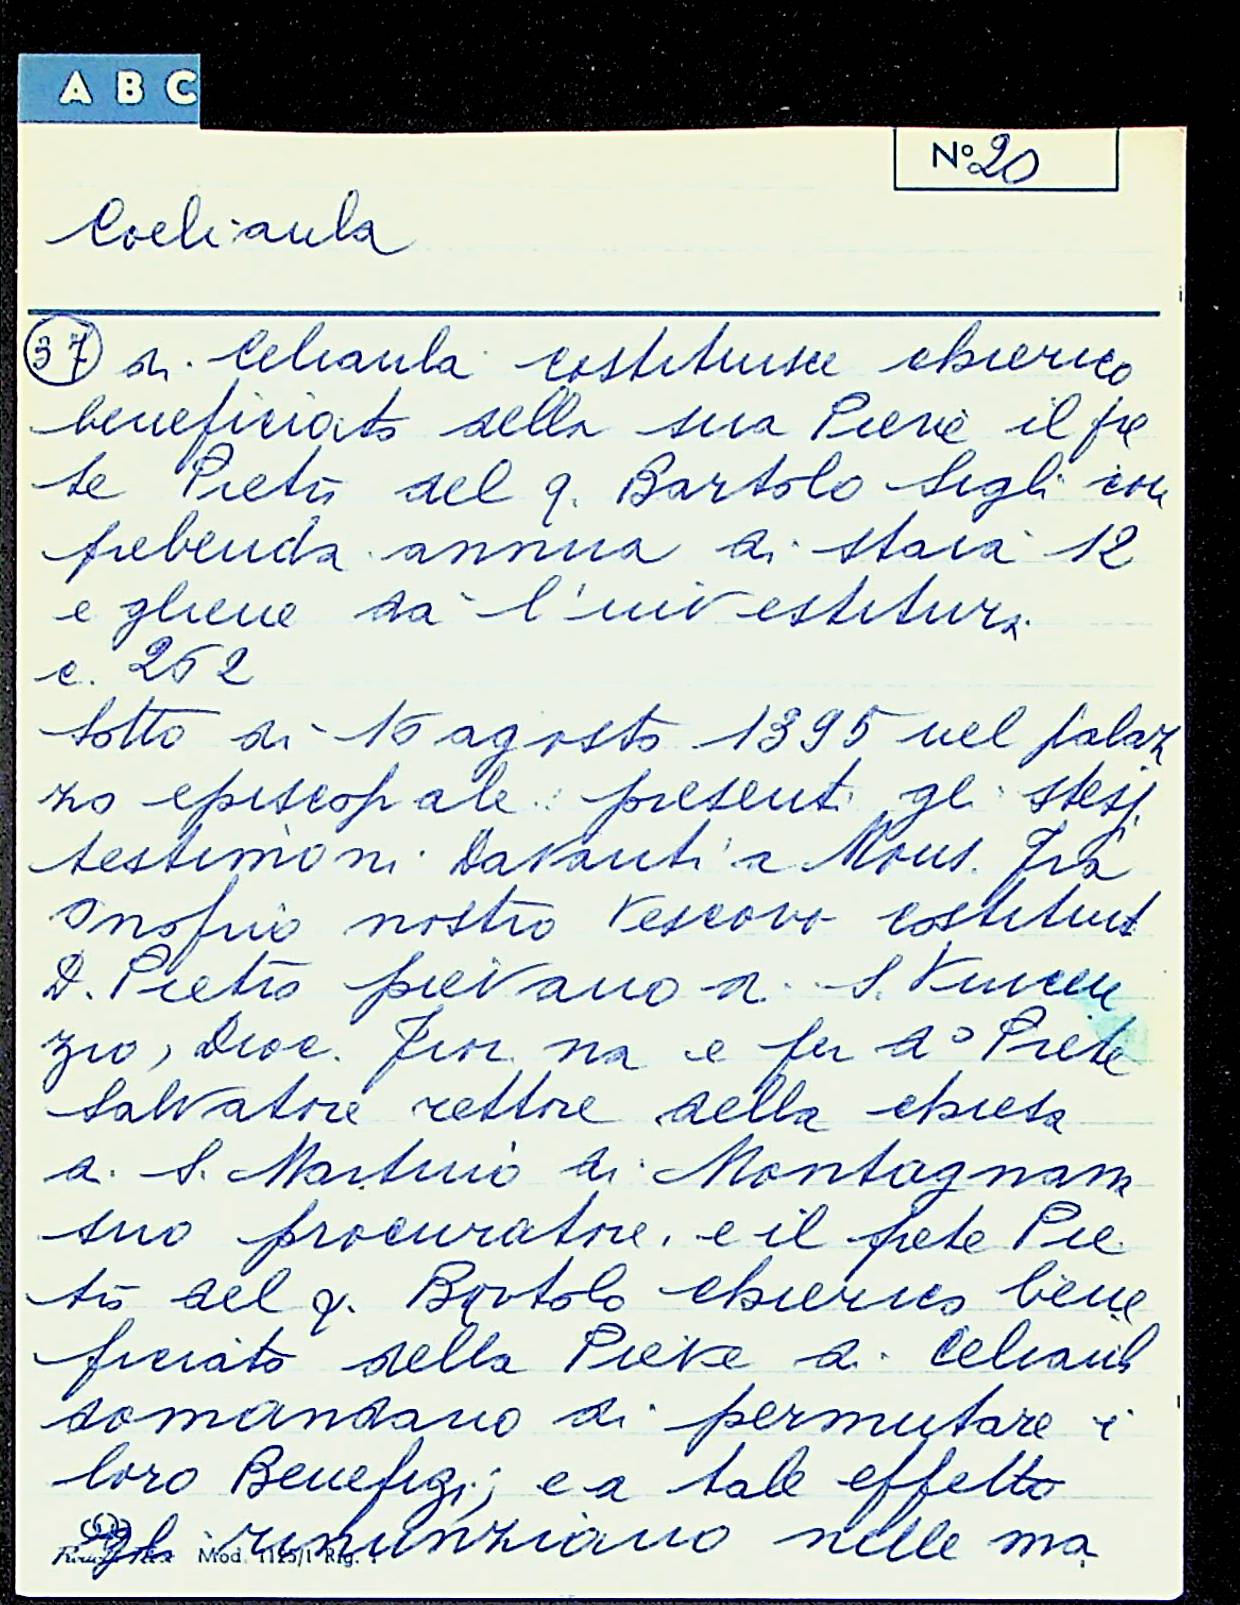 A B C
Nº 20
Coeliaula
37 di Celiaula costituisce chierico
beneficiato della sua Pieve il pre
te Pietro del q. Bartolo Segli con
prebenda annua di staia 12
e gliene dà l'investitura
c. 252
Sotto di 16 agosto 1395 nel palaz
zo episcopale presenti gli stessi
testimoni. Davanti a Mons. Frà
Onofrio nostro Vescovo costituiti
D. Pietro pievano di S. Vincen
zio, Dioc. Fior.na e per dº Prete
Salvatore rettore della chiesa
di S. Martino di Montagnana
suo procuratore, e il prete Pie
tro del q. Bartolo chierico bene
ficiato della Pieve di Celiaula
domandano di permutare i
loro Benefizi; e a tale effetto
gli rinunziano nelle ma
Mod. 1125/1 Rig.